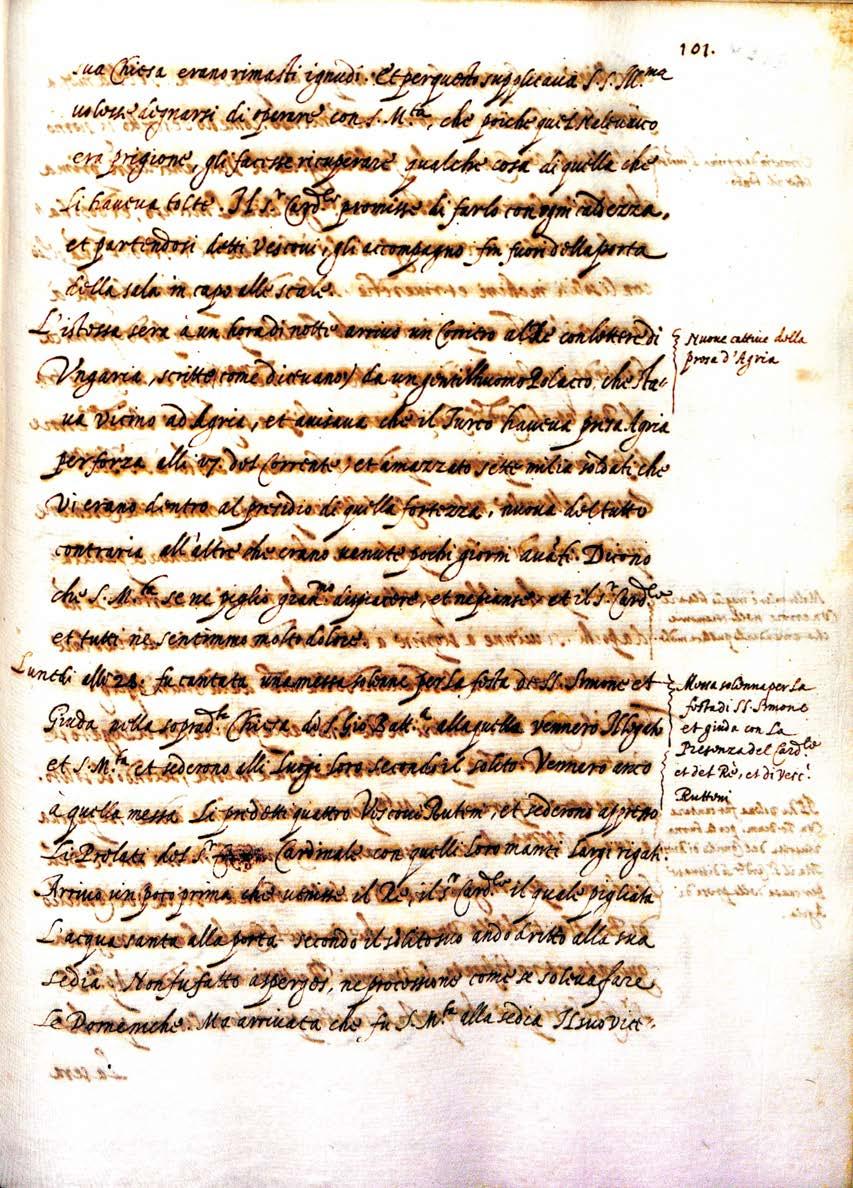 101.
sua Chiesa erano rimasti ignudi. Et per questo supplicava S. S. Ill.ma
volesse degnarsi di operare con S. M.tà, che poiche quel
era prigione, gli facesse ricuperare qualche cosa di quella che
li haveva tolte. Il s.r Card.le promisse di farlo con ogni caldezza,
et partendosi detti Vescovi, gli accompagnò fin fuori della porta
della sala in capo alle scale.
L'istessa sera à un hora di notte arrivò un Corriero al Rè con lettere di
Ungaria, scritte (come dicevano) da un gentilhuomo Polacco, che sta-
va vicino ad Agria, et avisava che il Turco haveva presa Agria
per forza alli del Corrente, et amazzato sette milia soldati che
vi erano dentro al presidio di quella fortezza, nuova del tutto
contraria all'altre che erano venute pochi giorni avāti. Dicono
che S. M.tà se ne pigliò gran.mo dispiacere, et ne piante, et il s.r Card.le
et tutti ne sentimmo molto dolore.
Nuove cattive della
presa d'Agria
Lunedi alli 28. fu cantata una messa solenne per la festa de SS. Simone et
Giuda nella soprad.ta Chiesa di S. Gio Batt.a alla quella vennero Il legato
et S. M.tà et sederono alli luogi loro secondo il solito. Vennero anco
à quella messa li predetti quattro Vescovi Ruteni, et sederono appresso
li Prelati del S.r Cardinale con quelli loro manti largi rigati.
Arrivò un poco prima che venisse il Rè, il s.r Card.le il quale pigliata
l'acqua santa alla porta secondo il solito suo andò dritto alla sua
sedia. Non fu fatto asperges, ne processione come se soleva fare
le Domeniche. Ma arrivata che fu S. M.tà alla sedia Il suo Vice-
Messa solenne per la
festa di SS. Simone
et giuda con la
Presenza del Card.le
et del Rè, et di Vesc.i
Rutteni